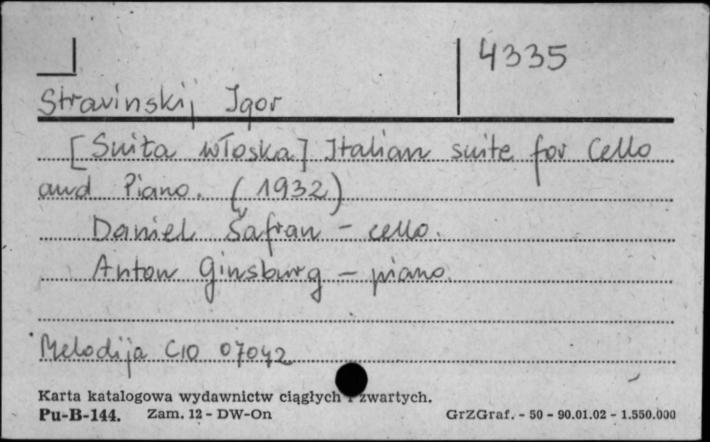 4335
Stravinskij Igor
[Suita włoska] Italian suite for Cello
and Piano. (1932)
Daniel Šafran - cello.
Anton Ginsburg - piano.
Melodija C10 07042
Karta katalogowa wydawnictw ciągłych i zwartych.
Pu-B-144. Zam. 12 - DW-On GrZGraf. - 50 - 90.01.02 - 1.550.000